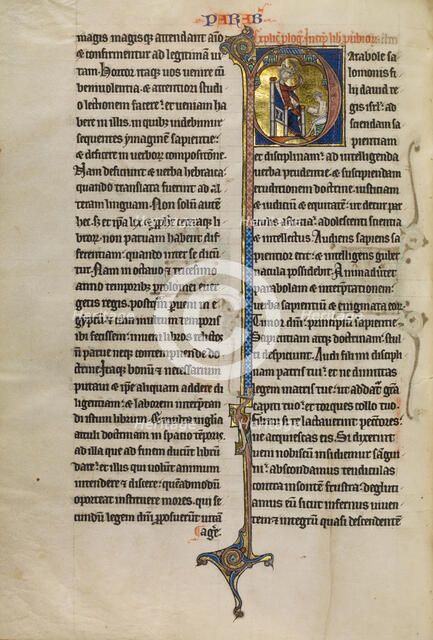 PARAB
magis magisque attendant animo
& confirmentur ad legitimam ui
tam. Hortor itaque uos uenire cum
beniuolentia. & attentiori studio
lectionem facere. & ueniam ha
bere in illis. in quibus uidebimur
sequentes ymaginem sapientie.
& deficere in uerborum compositione.
Nam deficiunt & uerba hebraica.
quando translata fuerint ad al
teram linguam. Non solum autem
hec. & ipsa lex & prophete. ceteraque li
brorum. non paruam habent dif
ferentiam. quando inter se dicun
tur. Nam in octauo & tricesimo
anno temporibus ptholomei euer
getis regis. postquam perueni in e
gyptum. & cum multum temporis
ibi fecissem. inueni libros relictos
non parue neque contempnende do
ctrine. Itaque bonum & necessarium
putaui & ipse aliquam addere di
ligentiam. & laborem interpretan
di istum librum. & multa uigilia
attuli doctrinam in spatio temporis.
ad illa que ad finem ducunt librum
dare. & illis qui uolunt animum
intendere & discere. quemadmodum
oporteat instruere mores. qui se
cundum legem domini proposuerunt uitam
agere.
Explicit prologus. Incipit liber prouerbiorum
Parabole sa
lomonis fi
lii dauid re
gis israel. ad
sciendam sa
pientiam
et disciplinam. ad intelligenda
uerba prudentie. & suscipiendam
eruditionem doctrine. iustitiam
& iudicium & equitatem. ut detur par
uulis astutia. adolescenti scientia
& intellectus. Audiens sapiens sa
pientior erit. & intelligens guber
nacula possidebit. Animaduertet
parabolam & interpretationem.
uerba sapientium & enigmata eorum.
Timor domini. principium sapientie.
Sapientiam atque doctrinam. stul
ti despiciunt. Audi fili mi discipli
nam patris tui. et ne dimittas
legem matris tue. ut addatur gratia
capiti tuo. et torques collo tuo.
Fili mi si te lactauerint peccatores.
ne acquiescas eis. Si dixerint
ueni nobiscum insidiemur sangui
ni. abscondamus tendiculas
contra insontem frustra. degluti
amus eum sicut infernus uiuen
tem. & integrum quasi descendentem